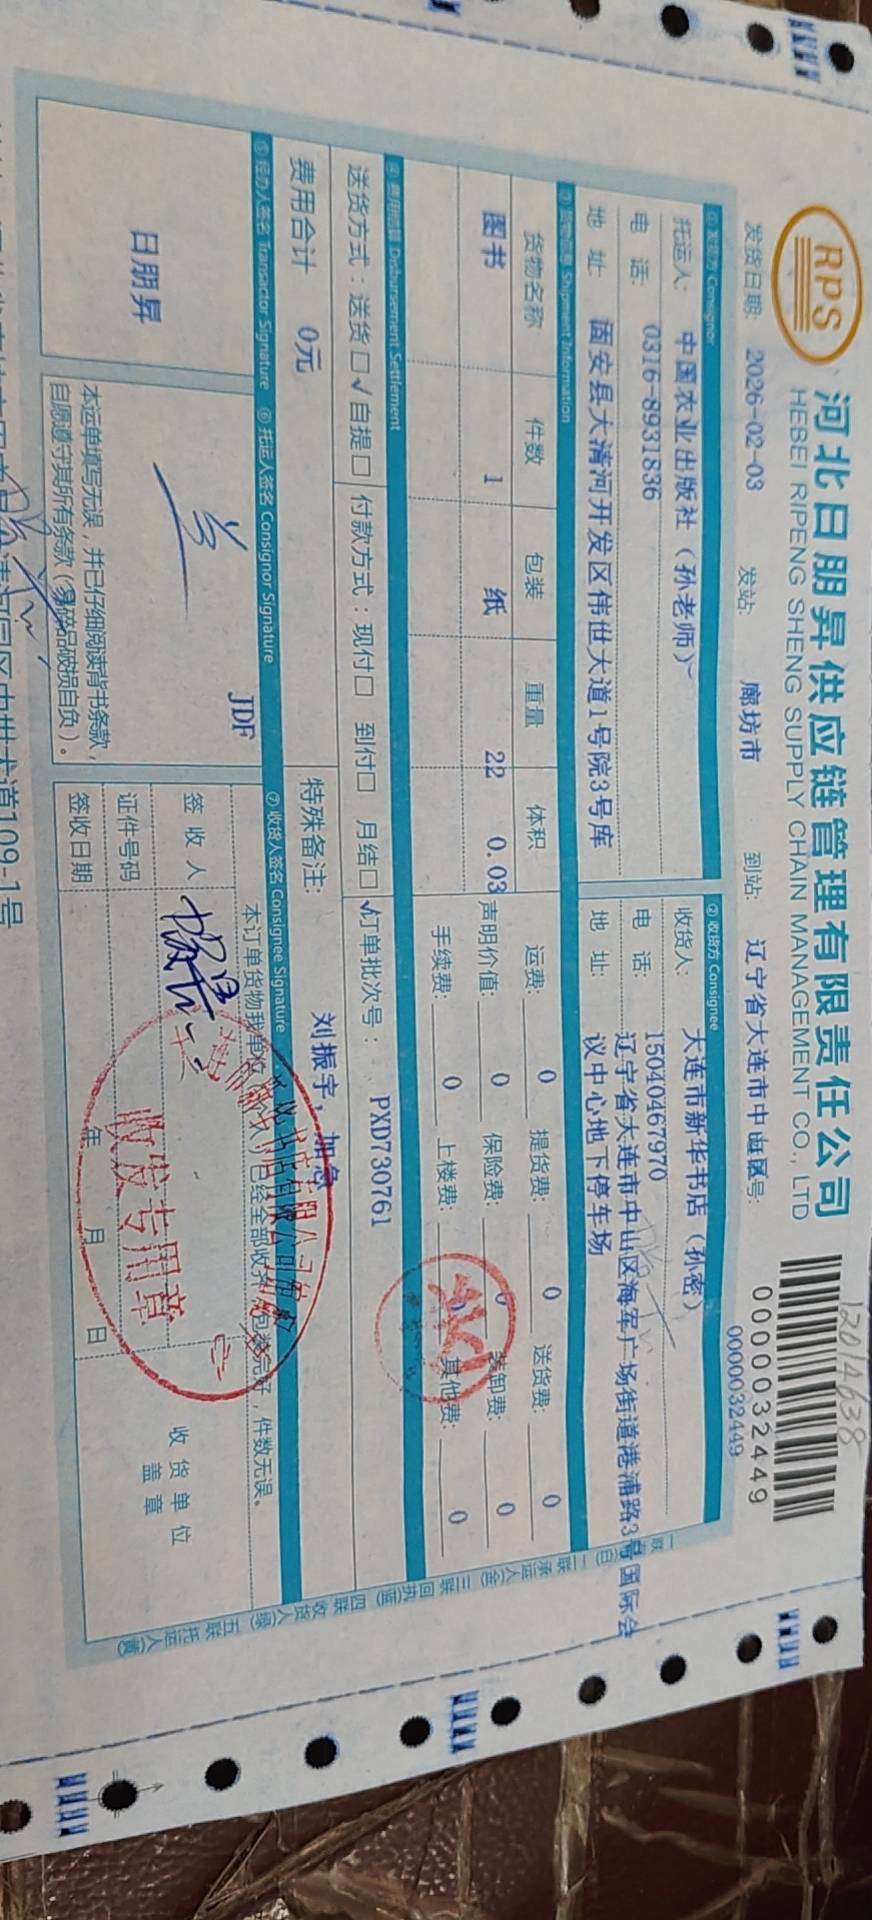 RPS
河北日朋昇供应链管理有限责任公司
HEBEI RIPENG SHENG SUPPLY CHAIN MANAGEMENT CO., LTD
12014638
0000032449
0000032449
发货日期: 2026-02-03 发站: 廊坊市 到站: 辽宁省大连市中山区 号:
① 发货方 Consignor
托运人: 中国农业出版社（孙老师）
电 话: 0316-8931836
地 址: 固安县大清河开发区伟世大道1号院3号库
② 收货方 Consignee
收货人: 大连市新华书店（孙密）
电 话: 15040467970
地 址: 辽宁省大连市中山区海军广场街道港浦路3号国际会
议中心地下停车场
③ 货物信息 Shipment Information
货物名称 件数 包装 重量 体积
图书 1 纸 22 0.03
运费: 0 提货费: 0 送货费: 0
声明价值: 0 保险费: 0 装卸费: 0
手续费: 0 上楼费: 其他费: 0
④ 费用结算 Disbursement Settlement
送货方式：送货□√自提□ 付款方式：现付□ 到付□ 月结□√ 订单批次号： PXD730761
费用合计 0元 特殊备注: 刘振宇，加急
⑤ 经办人签名 Transactor Signature ⑥ 托运人签名 Consignor Signature
日朋昇
JDF
本运单填写无误，并已仔细阅读背书条款，
自愿遵守其所有条款（易碎品破损自负）。
⑦ 收货人签名 Consignee Signature
本订单货物我单位（个人）已经全部收齐，包装完好，件数无误。
签 收 人
证件号码
签收日期 年 月 日
收货单位
盖 章
收发专用章
一联 二联承运人(金) 三联回执(蓝) 四联收货人(绿) 五联托运人(黄)
道109-1号